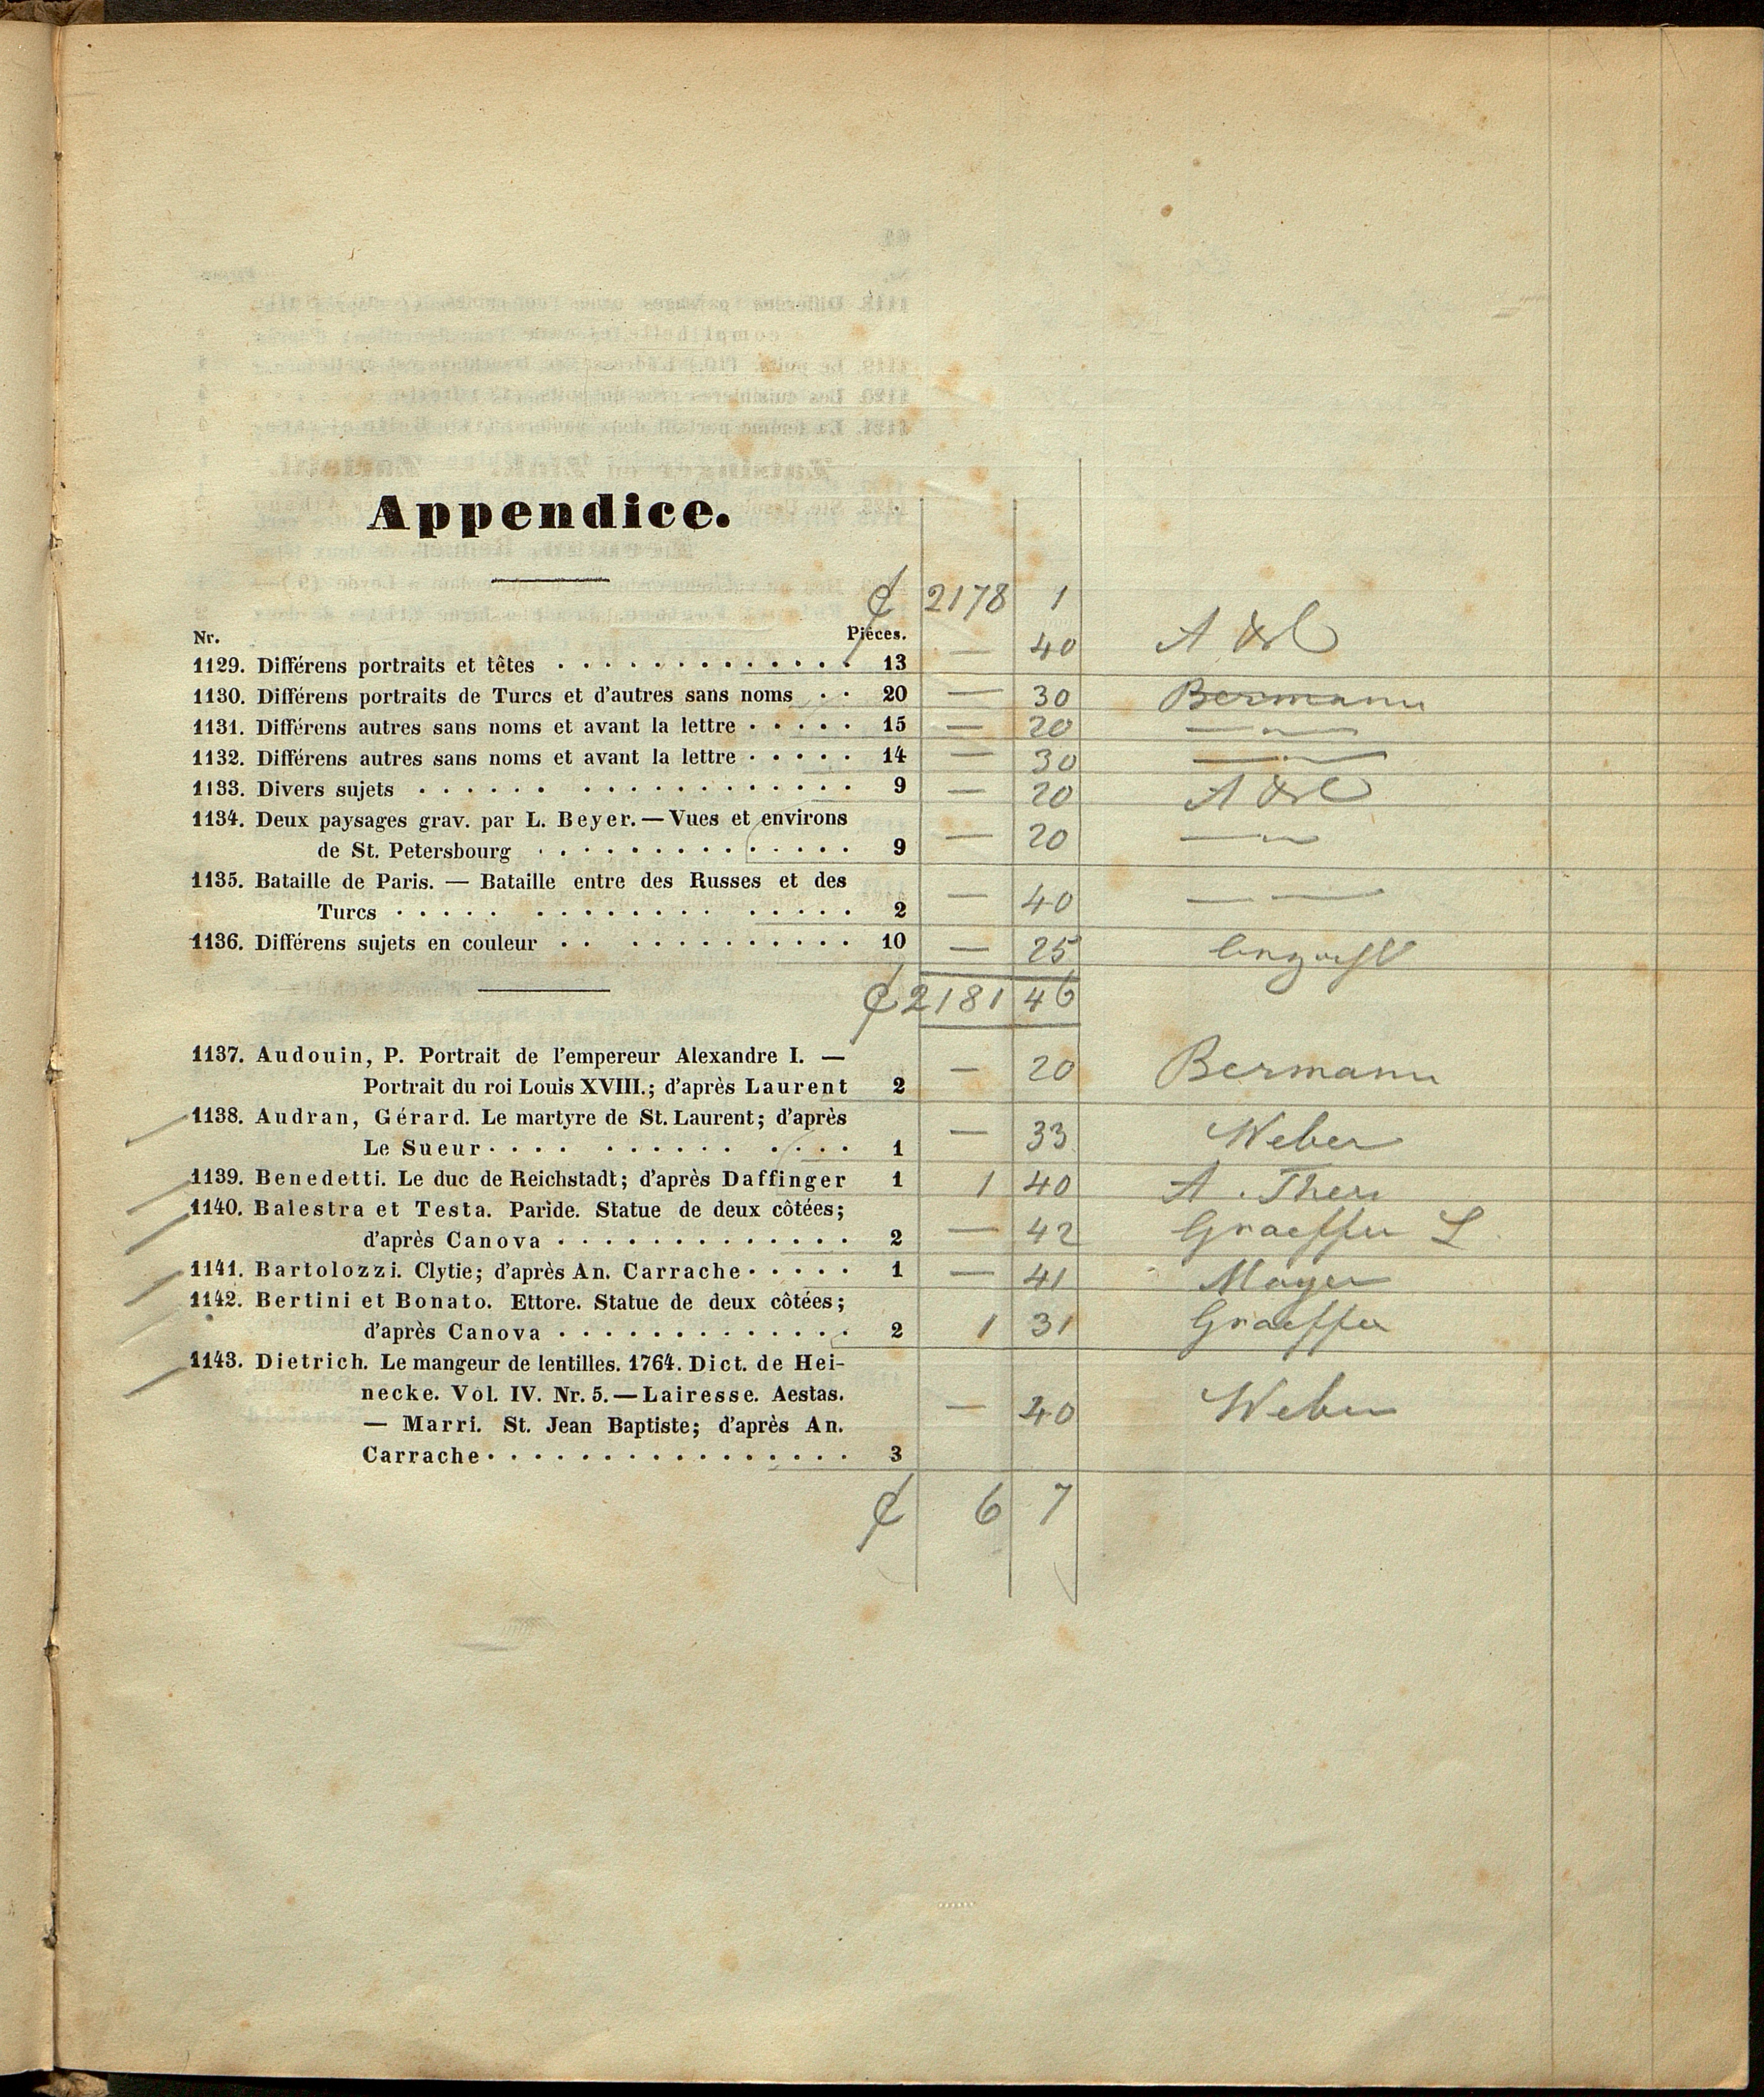 Appendice.
₵ 2178 1
Nr. Piéces.
1129. Différens portraits et têtes . . . . . . . . . . . . . 13 — 40 A
1130. Différens portraits de Turcs et d'autres sans noms . . 20 — 30 Bermann
1131. Différens autres sans noms et avant la lettre . . . . . 15 — 20 — " —
1132. Différens autres sans noms et avant la lettre . . . . . 14 — 30 — " —
1133. Divers sujets . . . . . . . . . . . . . . . . . . 9 — 20 A
1134. Deux paysages grav. par L. Beyer. — Vues et environs
de St. Petersbourg . . . . . . . . . . . . . . 9 — 20 — " —
1135. Bataille de Paris. — Bataille entre des Russes et des
Turcs . . . . . . . . . . . . . . . . . . 2 — 40 — " —
1136. Différens sujets en couleur . . . . . . . . . . . . . 10 — 25
₵ 2181 46
1137. Audouin, P. Portrait de l'empereur Alexandre I. —
Portrait du roi Louis XVIII.; d'après Laurent 2 — 20 Bermann
1138. Audran, Gérard. Le martyre de St. Laurent; d'après
Le Sueur . . . . . . . . . . . . . . 1 — 33 Weber
1139. Benedetti. Le duc de Reichstadt; d'après Daffinger 1 1 40 A.
1140. Balestra et Testa. Paride. Statue de deux côtées;
d'après Canova . . . . . . . . . . . . . 2 — 42 Graeffer L
1141. Bartolozzi. Clytie; d'après An. Carrache . . . . . 1 — 41 Mayer
1142. Bertini et Bonato. Ettore. Statue de deux côtées;
d'après Canova . . . . . . . . . . . . . 2 1 31 Graeffer
1143. Dietrich. Le mangeur de lentilles. 1764. Dict. de Hei-
necke. Vol. IV. Nr. 5. — Lairesse. Aestas.
— Marri. St. Jean Baptiste; d'après An. — 40 Weber
Carrache . . . . . . . . . . . . . . . . 3
₵ 6 7